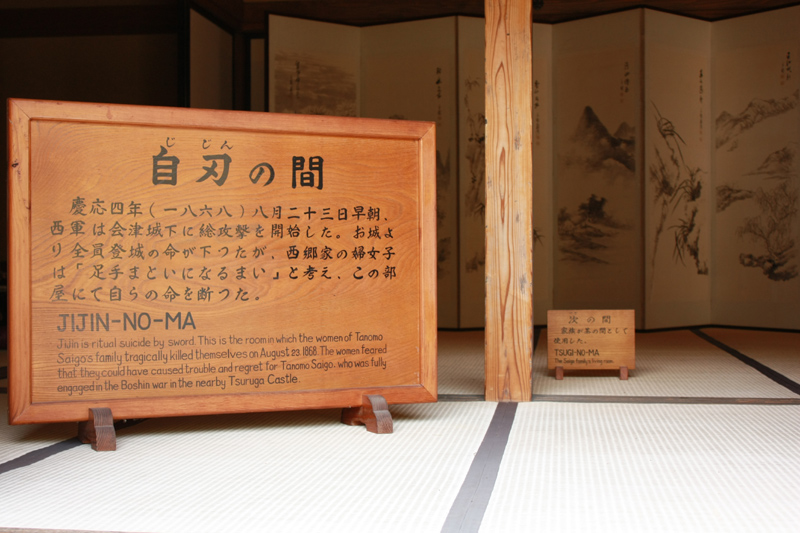 じ じん
自刃の間
慶応四年(一八六八)八月二十三日早朝、
西軍は会津城下に総攻撃を開始した。お城よ
り全員登城の命が下つたが、西郷家の婦女子
は「足手まといになるまい」と考え、この部
屋にて自らの命を断つた。
JIJIN-NO-MA
Jijin is ritual suicide by sword. This is the room in which the women of Tanomo
Saigo's family tragically killed themselves on August 23 1868. The women feared
that they could have caused trouble and regret for Tanomo Saigo, who was fully
engaged in the Boshin war in the nearby Tsuruga Castle.
次の間
家族が茶の間として
使用した。
TSUGI-NO-MA
The Saigo family's living room.